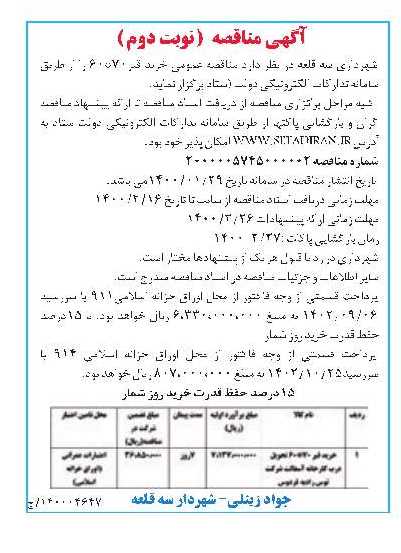 آگهی مناقصه (نوبت دوم)
شهرداری سه قلعه در نظر دارد مناقصه عمومی خرید قیر ۶۰/۷۰ را از طریق
سامانه تدارکات الکترونیکی دولت (ستاد) برگزار نماید.
کلیه مراحل برگزاری مناقصه از دریافت اسناد مناقصه تا ارائه پیشنهاد مناقصه
گران و بازگشایی پاکتها از طریق سامانه تدارکات الکترونیکی دولت ستاد به
آدرس WWW.SETADIRAN.IR امکان پذیر خواهد بود.
شماره مناقصه ۲۰۰۰۰۰۵۷۴۵۰۰۰۰۰۲
تاریخ انتشار مناقصه در سامانه تاریخ ۱۴۰۰/۰۱/۲۹ می باشد.
مهلت زمانی دریافت اسناد مناقصه از سایت تا تاریخ ۱۴۰۰/۲/۱۶
مهلت زمانی ارائه پیشنهادات ۱۴۰۰/۲/۲۶
زمان بازگشایی پاکات: ۱۴۰۰/۲/۲۷
شهرداری در رد یا قبول هر یک از پیشنهادها مختار است.
سایر اطلاعات و جزئیات مناقصه در اسناد مناقصه مندرج است.
پرداخت قسمتی از وجه فاکتور از محل اوراق خزانه اسلامی ۹۱۱ با سررسید
۱۴۰۲/۰۹/۰۶ به مبلغ ۶،۳۳۰،۰۰۰،۰۰۰ ریال خواهد بود. با ۱۵ درصد
حفظ قدرت خرید روز شمار
پرداخت قسمتی از وجه فاکتور از محل اوراق خزانه اسلامی ۹۱۴ با
سررسید ۱۴۰۲/۱۰/۲۵ به مبلغ ۸۰۷،۰۰۰،۰۰۰ ریال خواهد بود.
۱۵ درصد حفظ قدرت خرید روز شمار
ردیف نام کالا مبلغ برآورد اولیه (ریال) مدت پیمان مبلغ تضمین شرکت در مناقصه (ریال) محل تامین اعتبار
۱ خرید قیر ۶۰/۷۰ تحویل درب کارخانه آسفالت شرکت فردوس ۷،۱۳۷،۰۰۰،۰۰۰ ۷ روز اعتبارات عمرانی (اوراق خزانه اسلامی)
جواد زینلی- شهردار سه قلعه
۱۴۰۰۰۴۶۴۷/ج